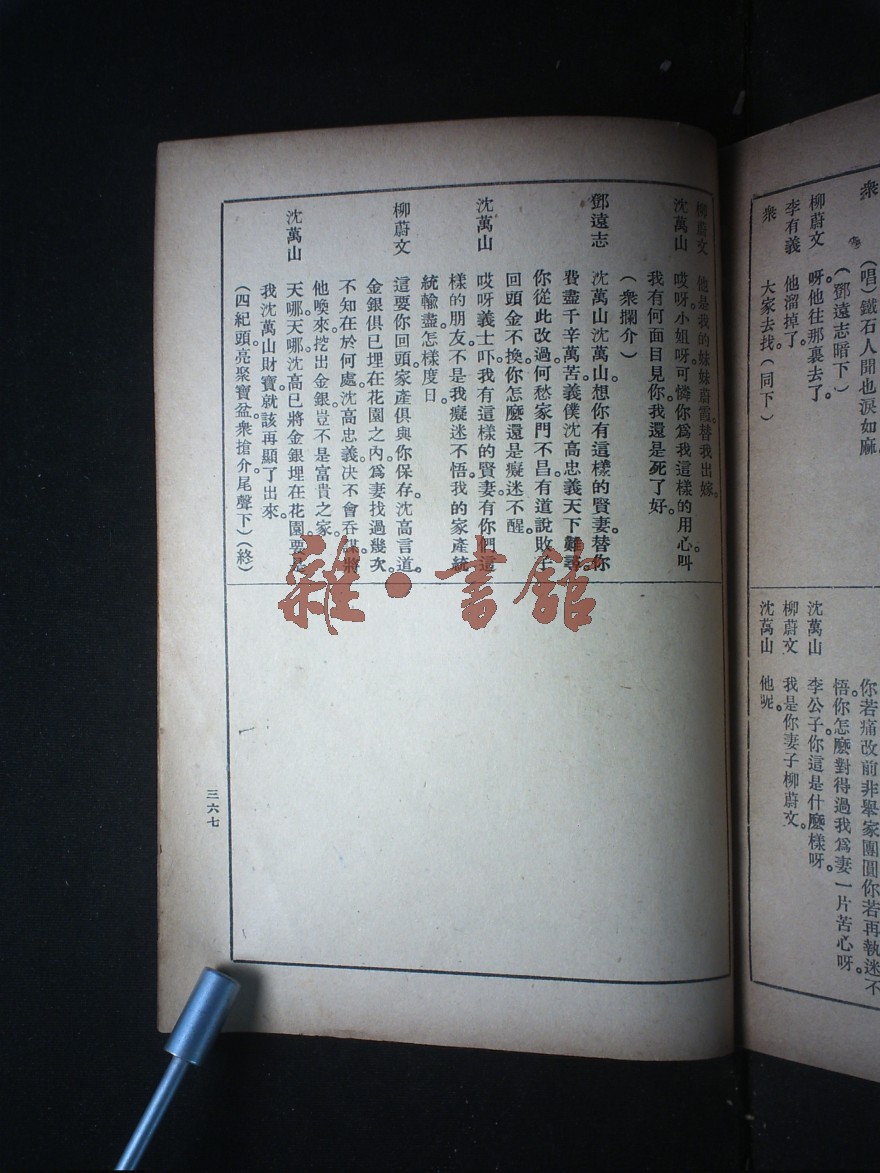 眾　(唱)鐵石人聞也淚如麻。
(鄧遠志暗下)
柳蔚文　呀。他往那裏去了。
李有義　他溜掉了。
眾　大家去找。(同下)
你若痛改前非舉家團圓你若再執迷不
悟。你怎麽對得過我爲妻一片苦心呀。
沈萬山　李公子。你這是什麽樣呀。
柳蔚文　我是你妻子柳蔚文。
沈萬山　他呢。
柳蔚文　他是我的妹妹蔚霞。替我出嫁。
沈萬山　哎呀。小姐呀。可憐你爲我這樣的用心。叫
我有何面目見你。我還是死了好。
(衆攔介)
鄧遠志　沈萬山沈萬山。想你有這樣的賢妻。替你
費盡千辛萬苦。義僕沈高忠義天下難尋。
你從此改過。何愁家門不昌。有道說敗子
回頭金不換。你怎麽還是癡迷不醒。
沈萬山　哎呀。義士吓。我有這樣的賢妻。有你們這
樣的朋友。不是我癡迷不悟。我的家產統
統輸盡。怎樣度日。
柳蔚文　這要你回頭。家產俱與你保存。沈高言道。
金銀俱已埋在花園之內。爲妻找過幾次。
不知在於何處。沈高忠義。决不會吞謀。將
他喚來。挖出金銀。豈不是富貴之家。
沈萬山　天哪。天哪。沈高已將金銀埋在花園。要是
我沈萬山財寶。就該再顯了出來。
(四紀頭。亮聚寶盆。衆搶介。尾聲下)(終)
三六七
雜·書館